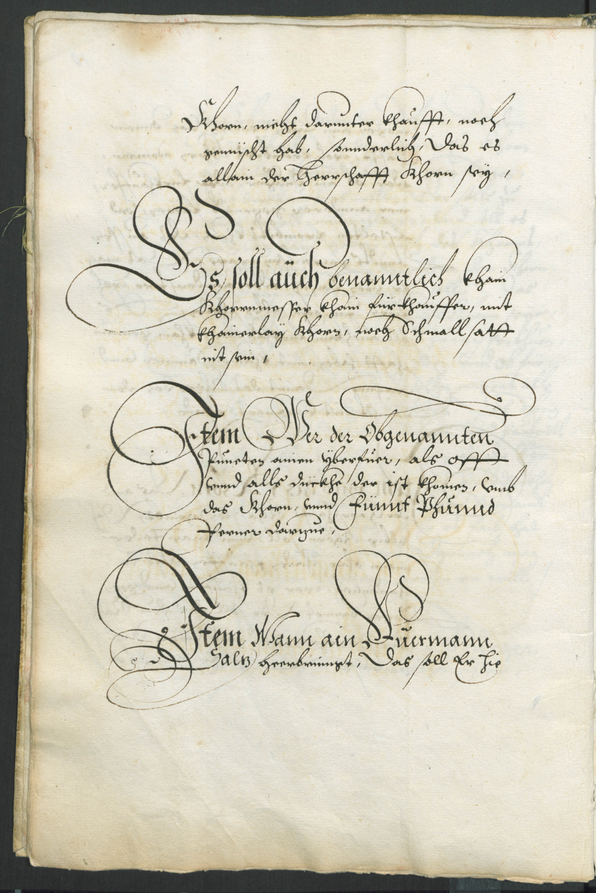 Khorn, nicht darunter khaufft, noch
gemischt hab, sonnderlich, Das es
allain der Herrschafft Khorn sey,
Es soll auch benanntlich khain
Khornmesser khain fürkhauffer, mit
khainerlay Khorn, noch Schmallsatt
nit sein,
Item Wer der Obgenannten
Puncten ainen yberfuer, als offt
vnnd alls dickhe, der ist khomen, vmb
das Khorn, vnnd Fünnf Phünnd
Perner darzue,
Item Wann ain Fuermann
Saltz heerbringt, Das soll Er hie